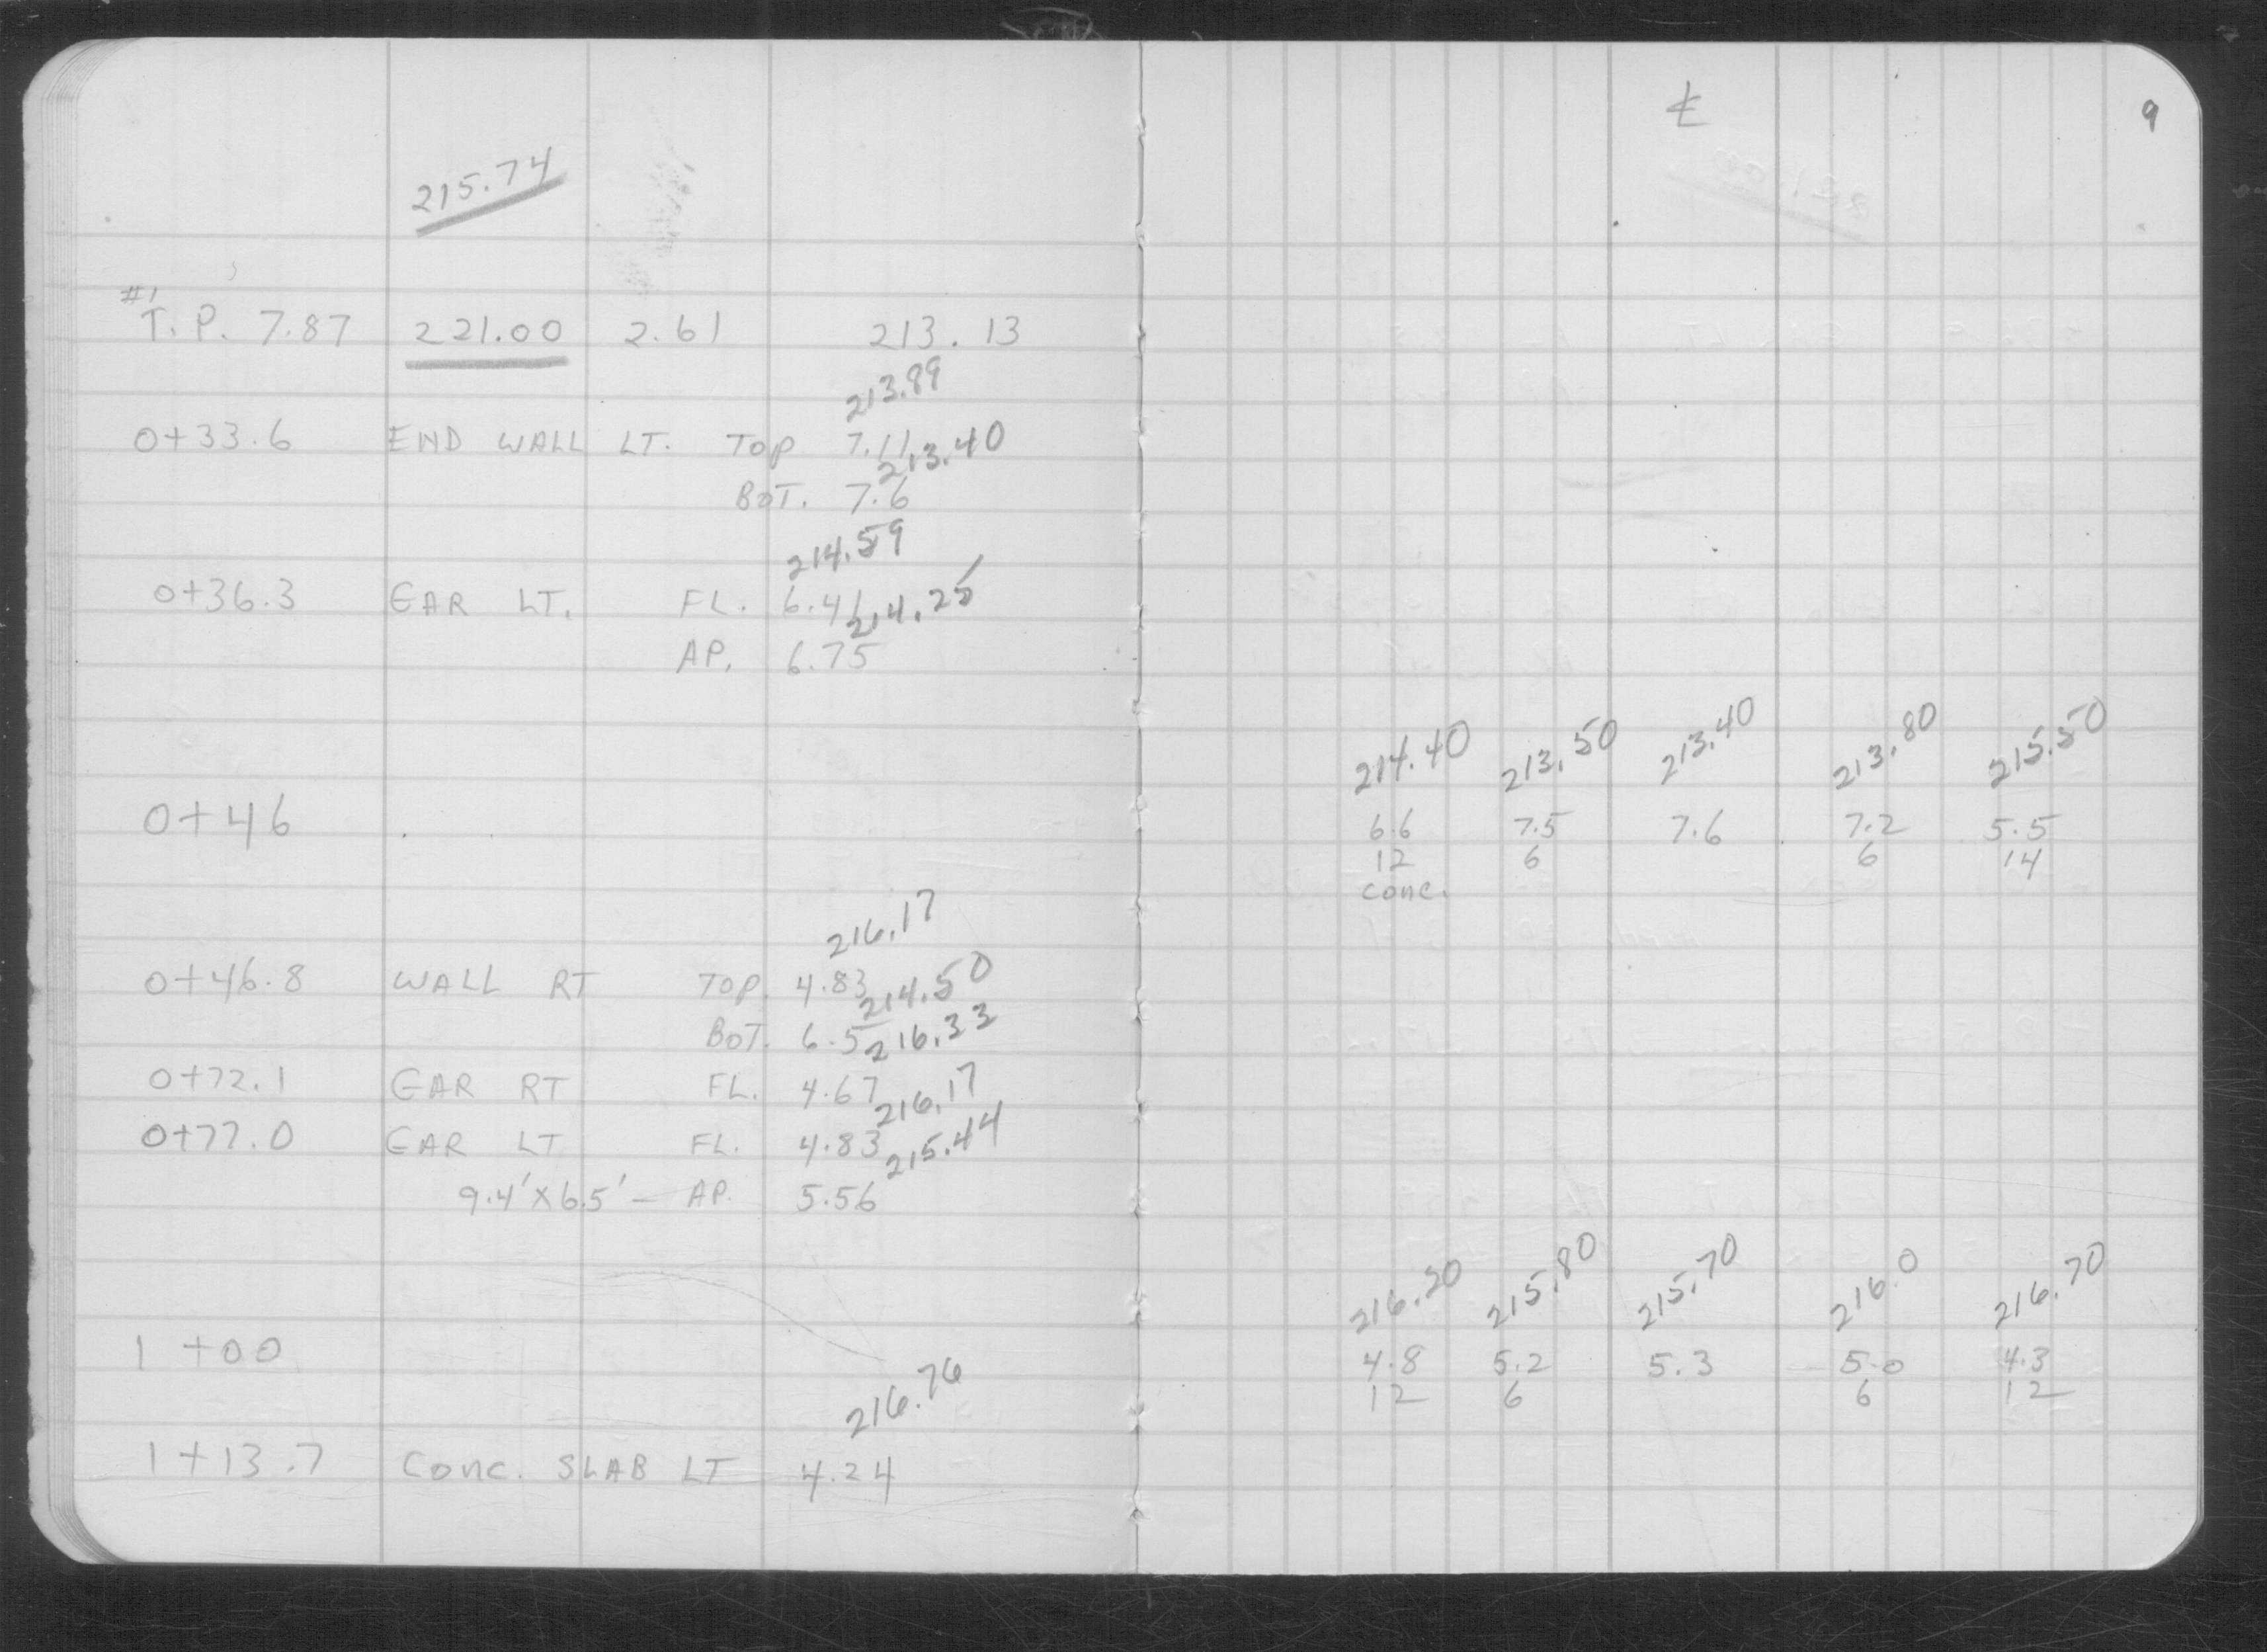 215.74
#1
T.P. 7.87 221.00 2.61 213.13
213.89
0+33.6 END WALL LT. TOP 7.11
213.40
BOT. 7.6
214.59
0+36.3 GAR LT. FL. 6.41
214.25
AP. 6.75
0+46
216.17
0+46.8 WALL RT TOP. 4.83
214.50
BOT. 6.5
216.33
0+72.1 GAR RT FL. 4.67
216.17
0+77.0 GAR LT FL. 4.83
215.44
9.4'X6.5'— AP. 5.56
1+00
216.76
1+13.7 CONC. SLAB LT 4.24
℄ 9
214.40 213.50 213.40 213.80 215.50
6.6 7.5 7.6 7.2 5.5
12 6 6 14
conc.
216.20 215.80 215.70 216.0 216.70
4.8 5.2 5.3 5.0 4.3
12 6 6 12